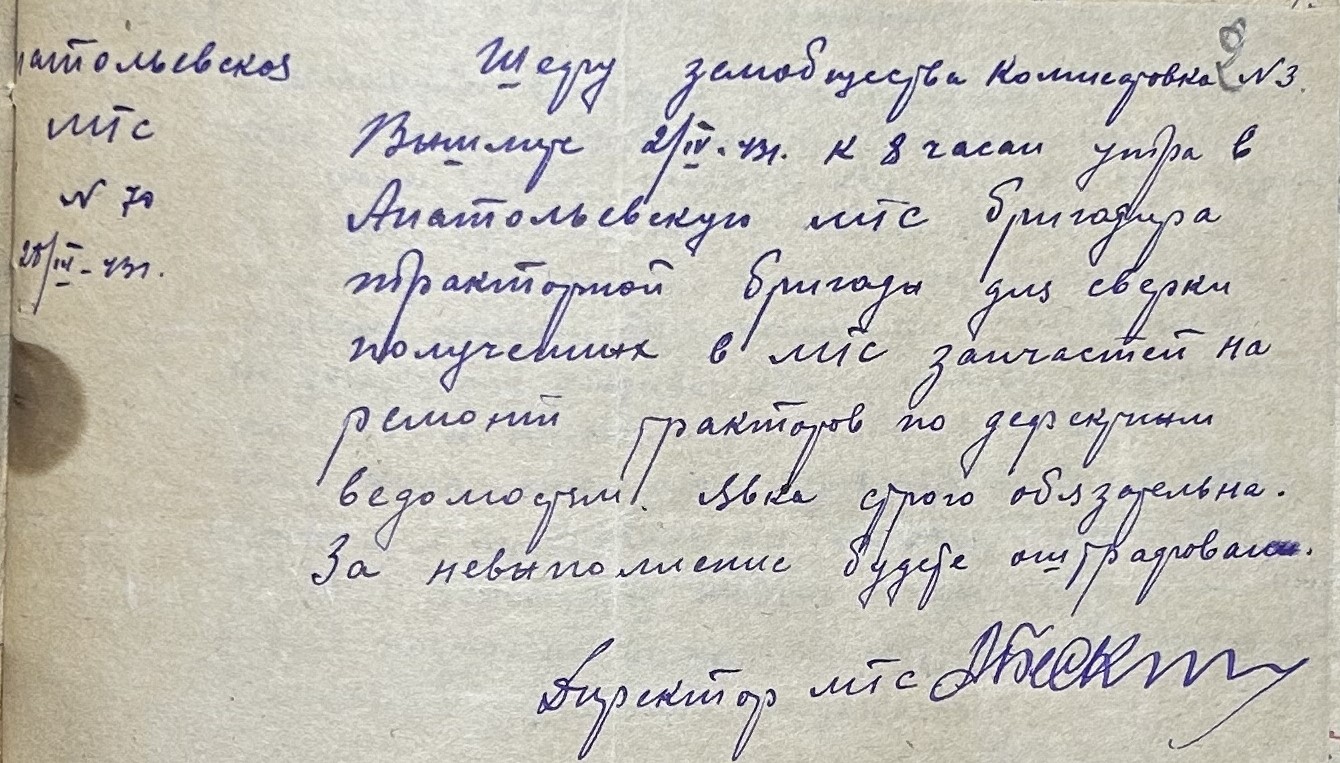 Анатольевская
МТС
N 70
28/III-43г.
Шефу земобщества Комисаровка N 3.
Вышлите 2/IV-43г. к 8 часам утра в
Анатольевскую МТС бригадира
тракторной бригады для сверки
полученых в МТС запчастей на
ремонт тракторов по дефектным
ведомостям. Явка строго обязательна.
За невыполнение будете оштрафованы.
Директор МТС